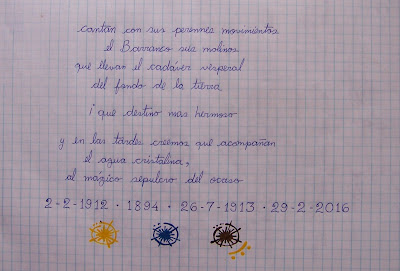 cantan con sus perennes movimientos
el Barranco sus molinos
que llevan el cadáver vesperal
del fondo de la tierra
¡ que destino mas hermoso
y en las tardes creemos que acompañan
el agua cristalina,
al mágico sepulcro del ocaso
2-2-1912 · 1894 · 26-7-1913 · 29-2-2016